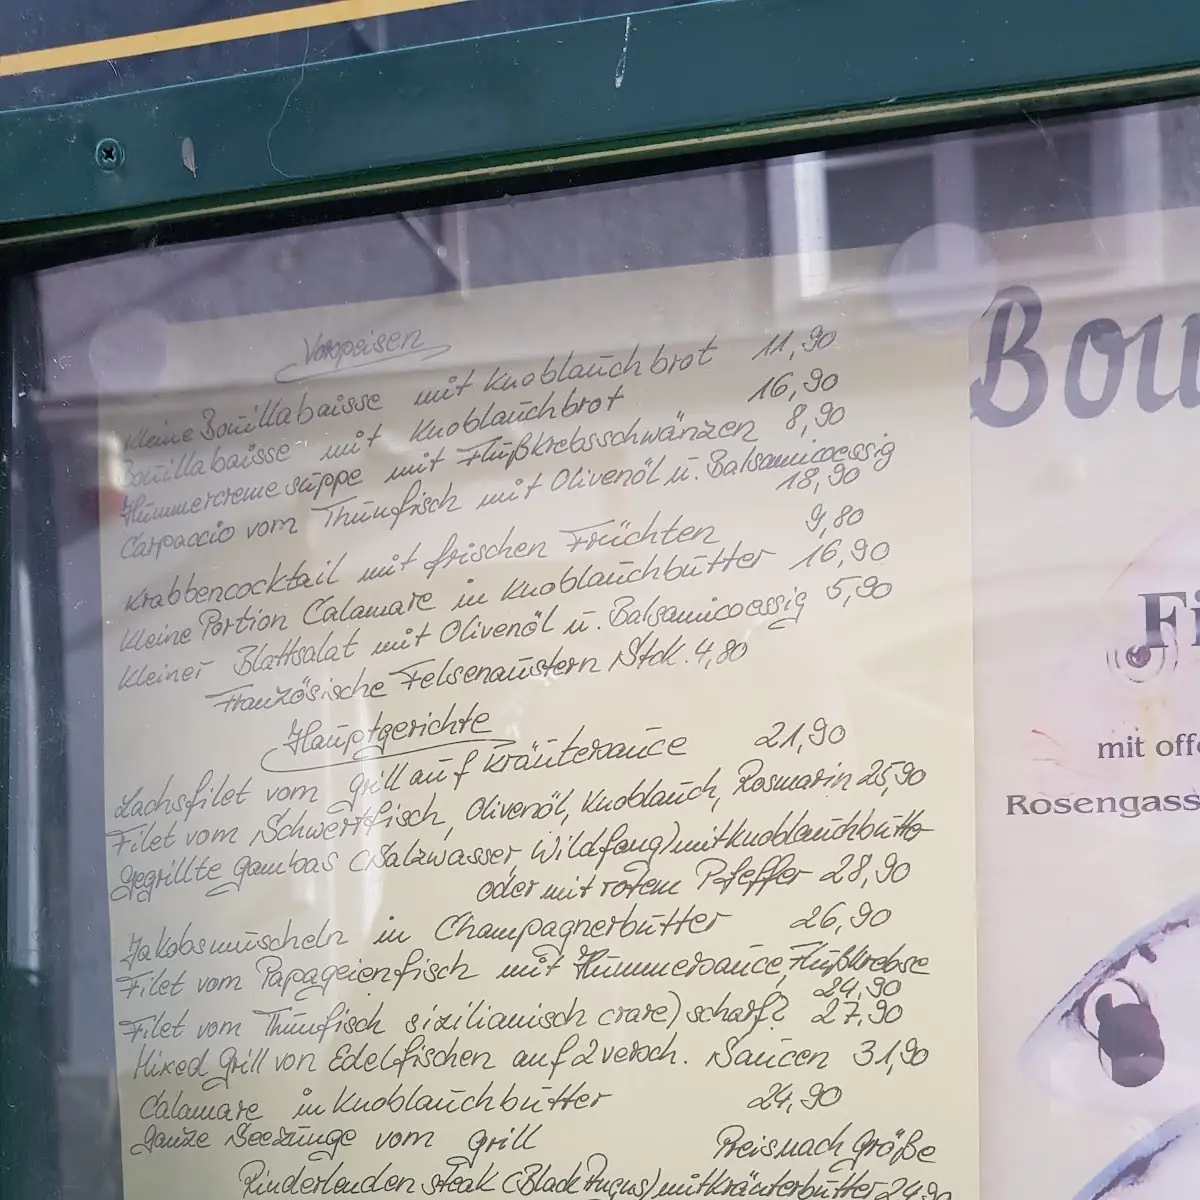 Vorspeisen
Kleine Bouillabaisse mit Knoblauchbrot 11,90
Bouillabaisse mit Knoblauchbrot 16,90
Hummercremesuppe mit Flußkrebsschwänzen 8,90
Carpaccio vom Thunfisch mit Olivenöl u. Balsamicoessig
18,90
Krabbencocktail mit frischen Früchten 9,80
Kleine Portion Calamare in Knoblauchbutter 16,90
Kleiner Blattsalat mit Olivenöl u. Balsamicoessig 5,90
Französische Felsenaustern Stck. 4,80
Hauptgerichte
Lachsfilet vom Grill auf Kräutersauce 21,90
Filet vom Schwertfisch, Olivenöl, Knoblauch, Rosmarin 25,90
Gegrillte Gambas (Salzwasser, Wildfang) mit Knoblauchbutter
oder mit rotem Pfeffer 28,90
Jakobsmuscheln in Champagnerbutter 26,90
Filet vom Papageienfisch mit Hummersauce, Flußkrebse
24,90
Filet vom Thunfisch sizilianisch (rare) scharf? 27,90
Mixed Grill von Edelfischen auf 2 versch. Saucen 31,90
Calamare in Knoblauchbutter 24,90
Ganze Seezunge vom Grill Preis nach Größe
Rinderlendensteak (Black Angus) mit Kräuterbutter 24,90
Bou
Fi
mit offe
Rosengass